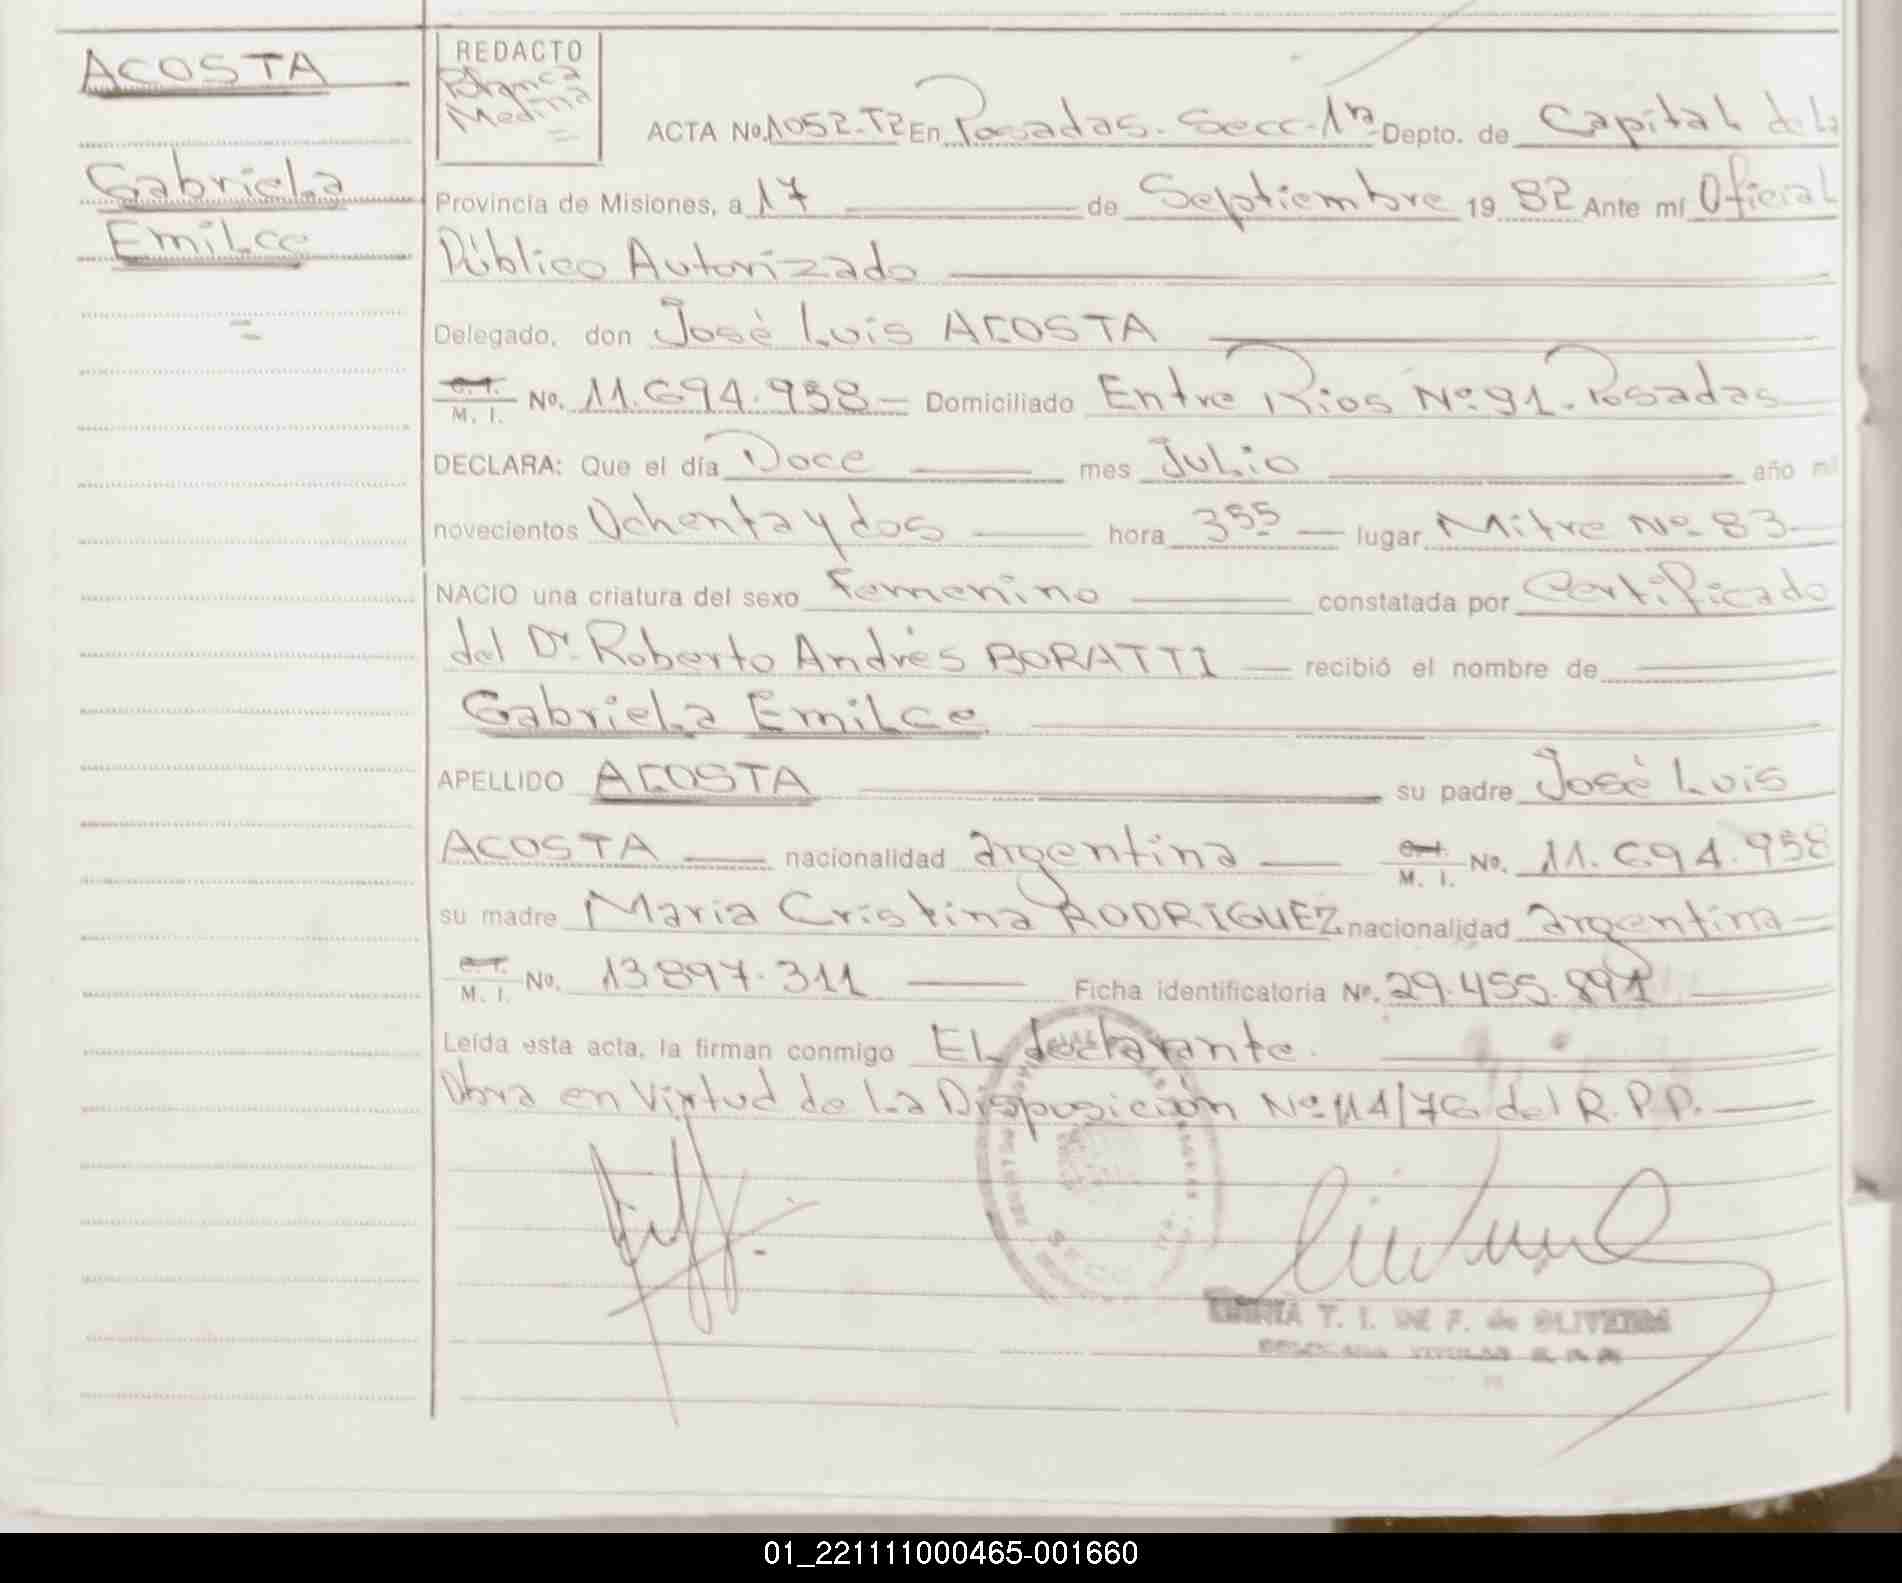 ACOSTA
Gabriela
Emilce
REDACTO
Blanca
Medina
ACTA No. 1052-T2 En Posadas. Secc. 1ra Depto. de Capital de la
Provincia de Misiones, a 17 de Septiembre 19 82 Ante mí Oficial
Público Autorizado
Delegado, don José Luis ACOSTA
C.I.
M. I. No. 11.694.958 Domiciliado Entre Rios Nº 91. Posadas
DECLARA: Que el día Doce mes Julio año mil
novecientos Ochenta y dos hora 355 lugar Mitre Nº 83
NACIO una criatura del sexo Femenino constatada por Certificado
del Dr. Roberto Andrés BORATTI recibió el nombre de
Gabriela Emilce
APELLIDO ACOSTA su padre José Luis
ACOSTA nacionalidad argentina C.I. M. I. No. 11.694.958
su madre Maria Cristina RODRIGUEZ nacionalidad argentina
C.I. M. I. No. 13897.311 Ficha identificatoria Nº. 29.455.891
Leída esta acta, la firman conmigo EL declarante.
Obra en Virtud de La Disposición Nº 114/76 del R.P.P.
T. I. DE F. de OLIVEIRA
01_221111000465-001660